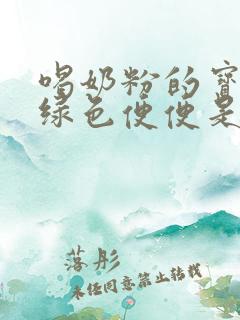 喝奶粉的宝
绿色便便是
落彤
未经同意禁止转载